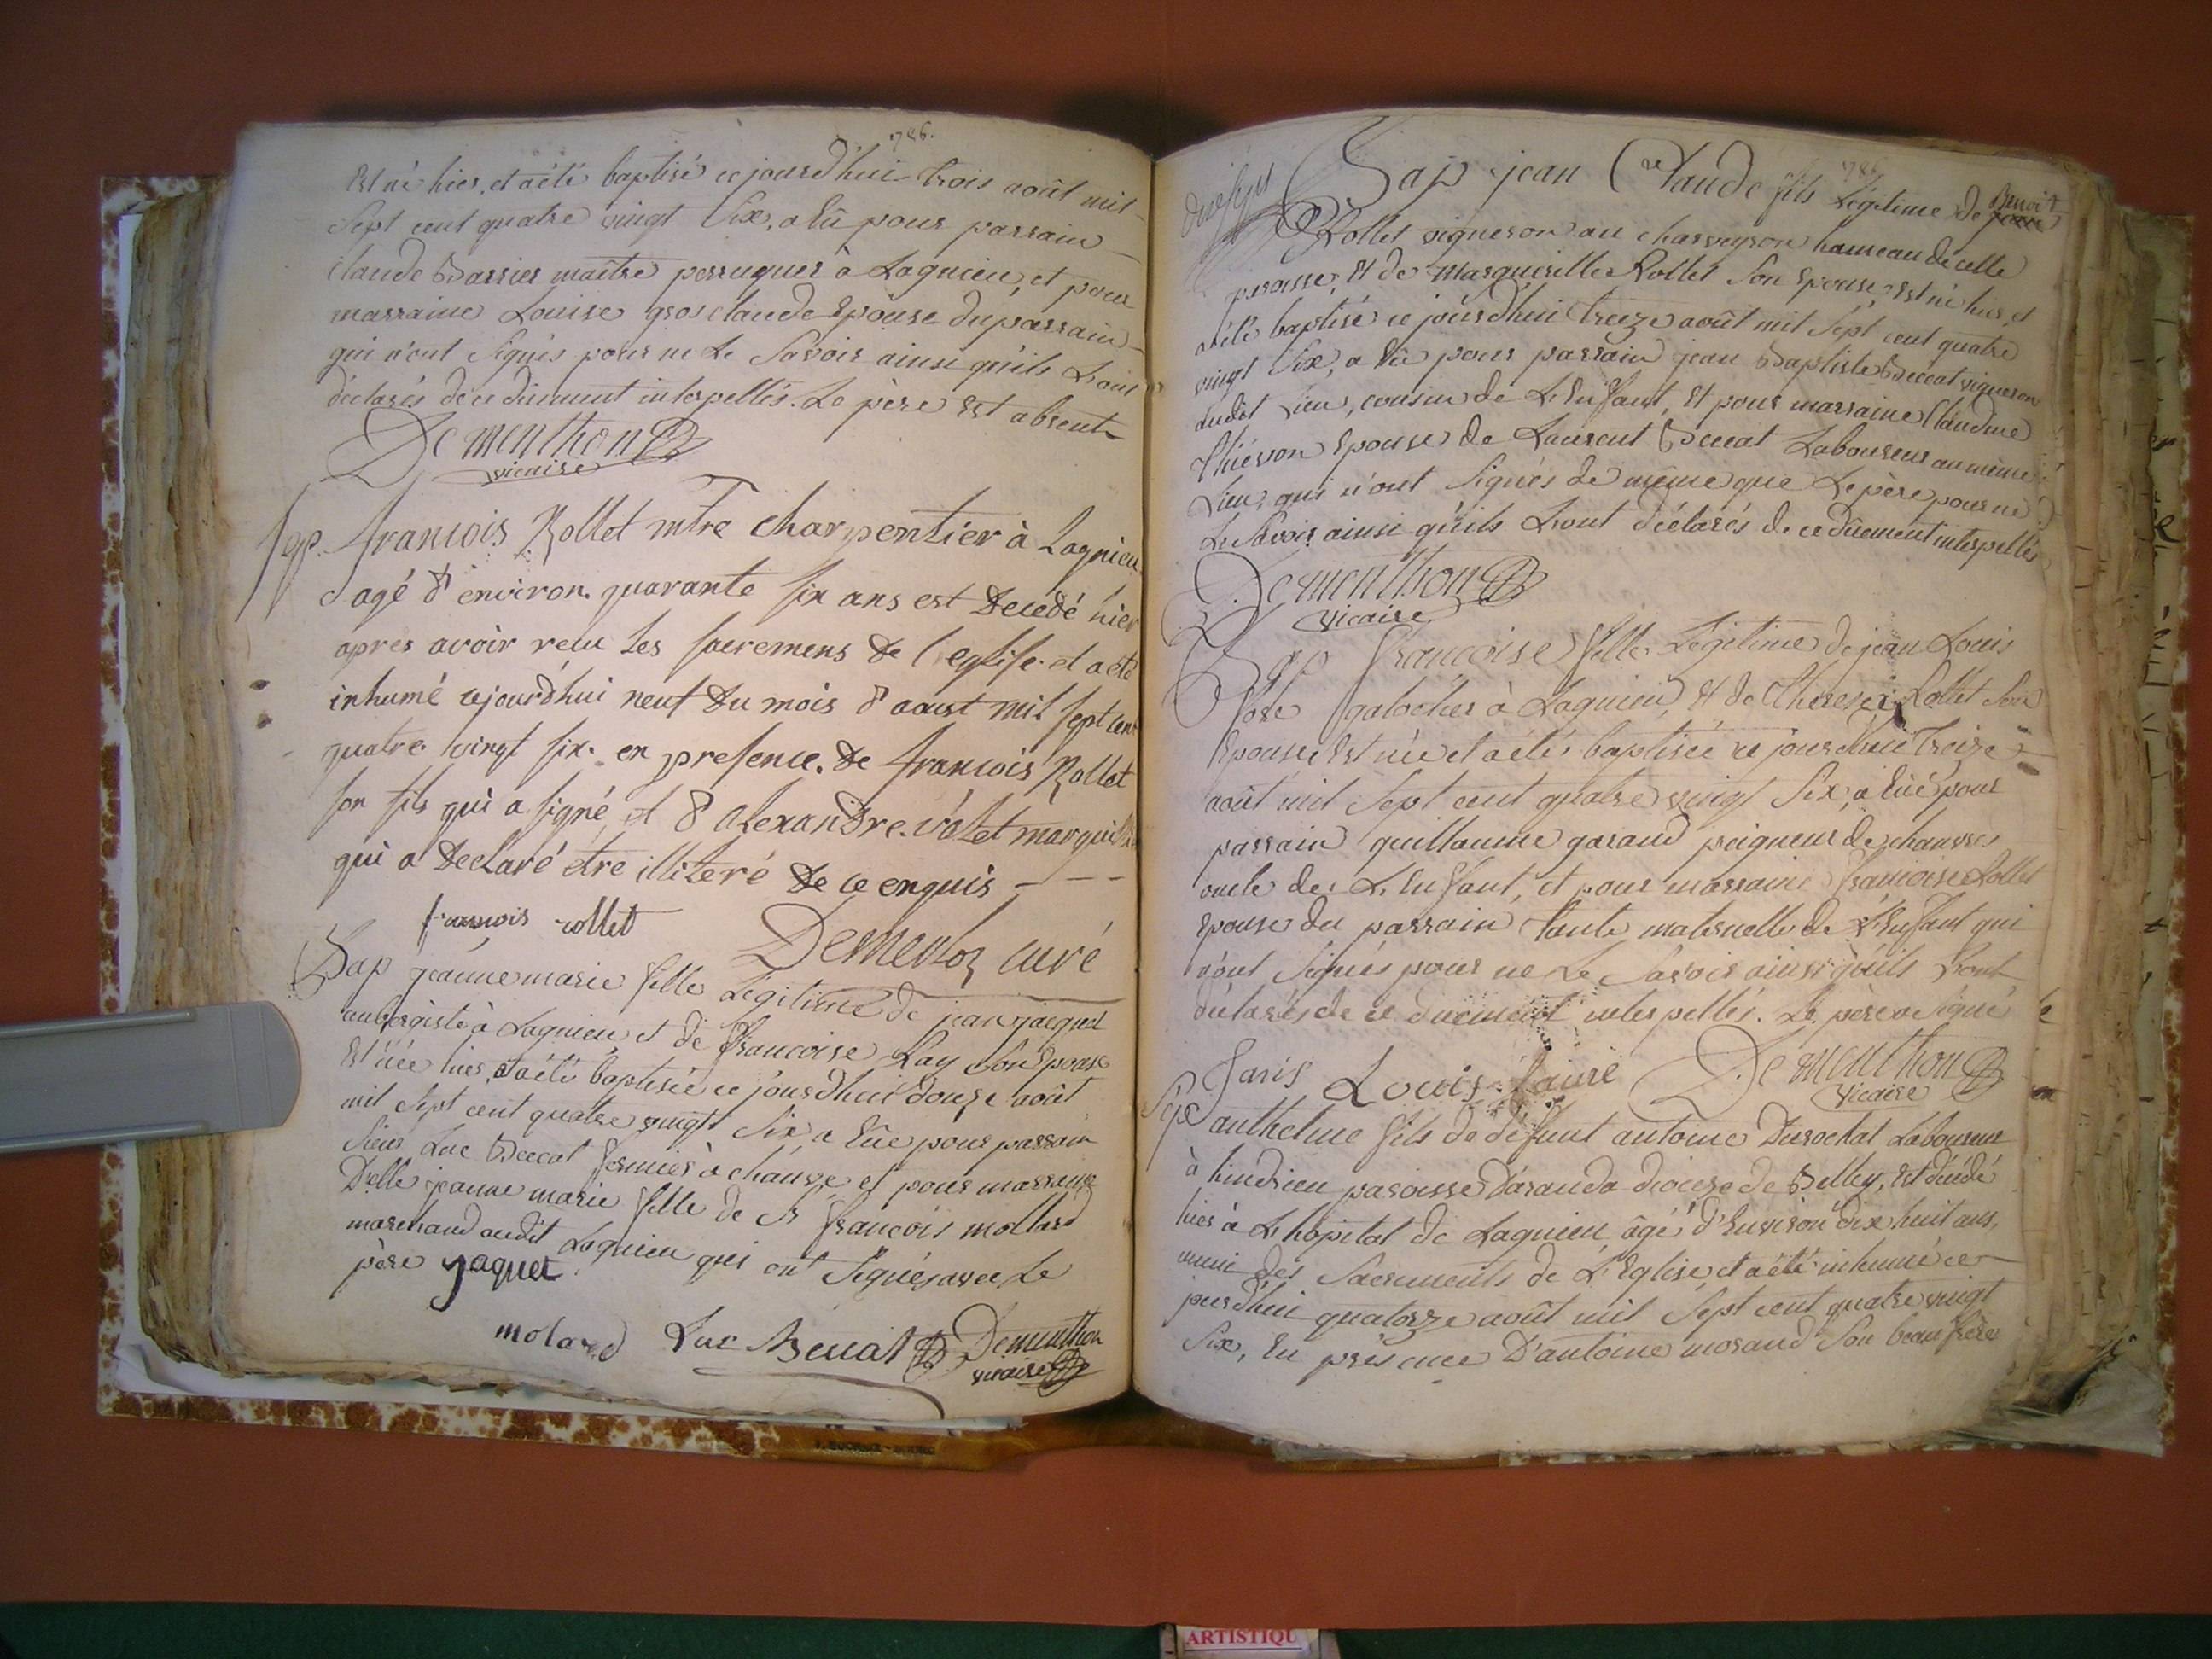 786.
Est né hier, et a été baptisé ce jourd'hui trois août mil
Sept cent quatre vingt Six, a Eû pour parrain
Claude Barrier maître perruquier à Lagnieu, et pour
marraine Louise grosclaude Epouse du parrain
qui n'ont Signés pour ne Le Savoir ainsi qu'ils L'ont
déclarés de ce dûement interpellés. Le père Est absent
Dementhon
vicaire
Sep. francois Rollet mtre charpentier à Lagnieu
agé d'environ quarante six ans est decedé hier
apres avoir recu les sacremens de l'eglise et a eté
inhumé cejourdhui neuf du mois d'aoust mil sept cent
quatre vingt six. en presence de francois Rollet
son fils qui a signé et d'alexandre valet marguillier
qui a declaré étre illiteré de ce enquis
francois rollet
curé
Bap jeanne marie fille Légitime de jean jacquet
aubergiste à Lagnieu et de françoise Lay Son Epouse
Est née hier, et a été baptisée ce jourd'hui douze août
mil Sept cent quatre vingt Six, a Eûe pour parrain
Sieur Luc Beccat fermier à chanve et pour marraine
Delle jeanne marie fille de Sr françois mollard
marchand audit Lagnieu qui ont Signés avec Le
père jaquet
molard Luc Beccat Dementhon
vicaire
786
Bap jean Claude fils Légitime de Benoit
Rollet vigneron au charveyron hameau de cette
paroisse, Et de Marguerille Rollet Son Epouse Est né hier, et
a été baptisé ce jourd'hui treize août mil Sept cent quatre
vingt Six, a Eû pour parrain jean Baptiste Beccat vigneron
dudit Lieu, cousin de L'Enfant, Et pour marraine Claudine
Thiévon Epouse de Laurent Beccat Laboureur au même
Lieu, qui n'ont Signés de même que Le père pour ne
Le Savoir ainsi qu'ils L'ont déclarés de ce dûement interpellés
Dementhon
vicaire
Bap françoise fille Légitime de jean Louis
fore galocher à Lagnieu, Et de Therese Rollet Son
Epouse Est née et a été baptisée ce jourd'hui treize
août mil Sept cent quatre vingt Six, a Eûe pour
parrain guillaume garaud peigneur de chanvre
oncle de L'Enfant, et pour marraine françoise Rollet
Epouse du parrain tante maternelle de L'Enfant qui
n'ont Signés pour ne Le Savoir ainsi qu'ils L'ont
déclarés de ce dûement interpellés. Le père a Signé
Louis faure Dementhon
vicaire
Sep anthelme fils de défunt antoine Durochat Laboureur
à hindrieu paroisse d'aranda diocèse de Belley, Est décédé
hier à L'hôpital de Lagnieu, âgé d'Environ dix huit ans,
muni des Sacrements de L'Eglise, et a été inhumé ce
jourd'hui quatorze août mil Sept cent quatre vingt
Six, En présence D'antoine morand Son beau frère
ARTISTIQU